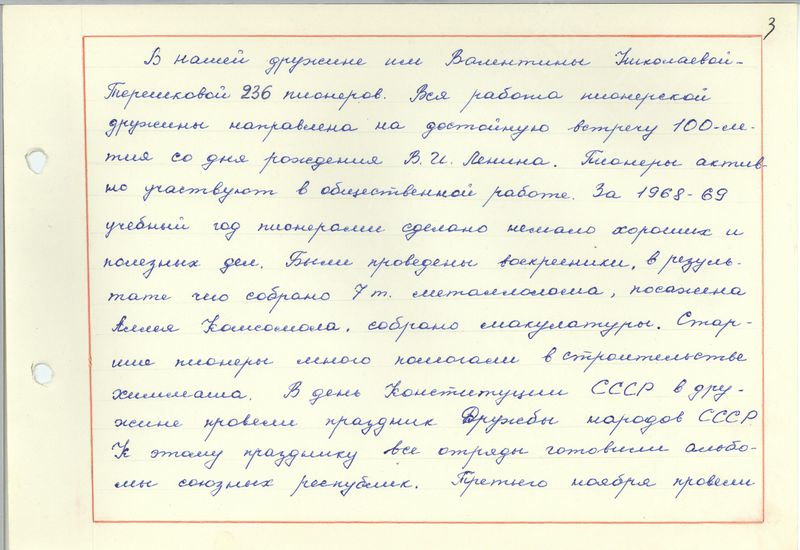 3
В нашей дружине им Валентины Николаевой-
Терешковой 236 пионеров. Вся работа пионерской
дружины направлена на достойную встречу 100-ле-
тия со дня рождения В. И. Ленина. Пионеры актив-
но участвуют в общественной работе. За 1968-69
учебный год пионерами сделано немало хороших и
полезных дел. Были проведены воскресники, в резуль-
тате чего собрано 7 т. металлолома, посажена
Аллея Комсомола, собрано макулатуры. Стар-
шие пионеры много помогали в строительстве
химмаша. В день Конституции СССР в дру-
жине провели праздник Дружбы народов СССР
К этому празднику все отряды готовили альбо-
мы союзных республик. Третьего ноября провели